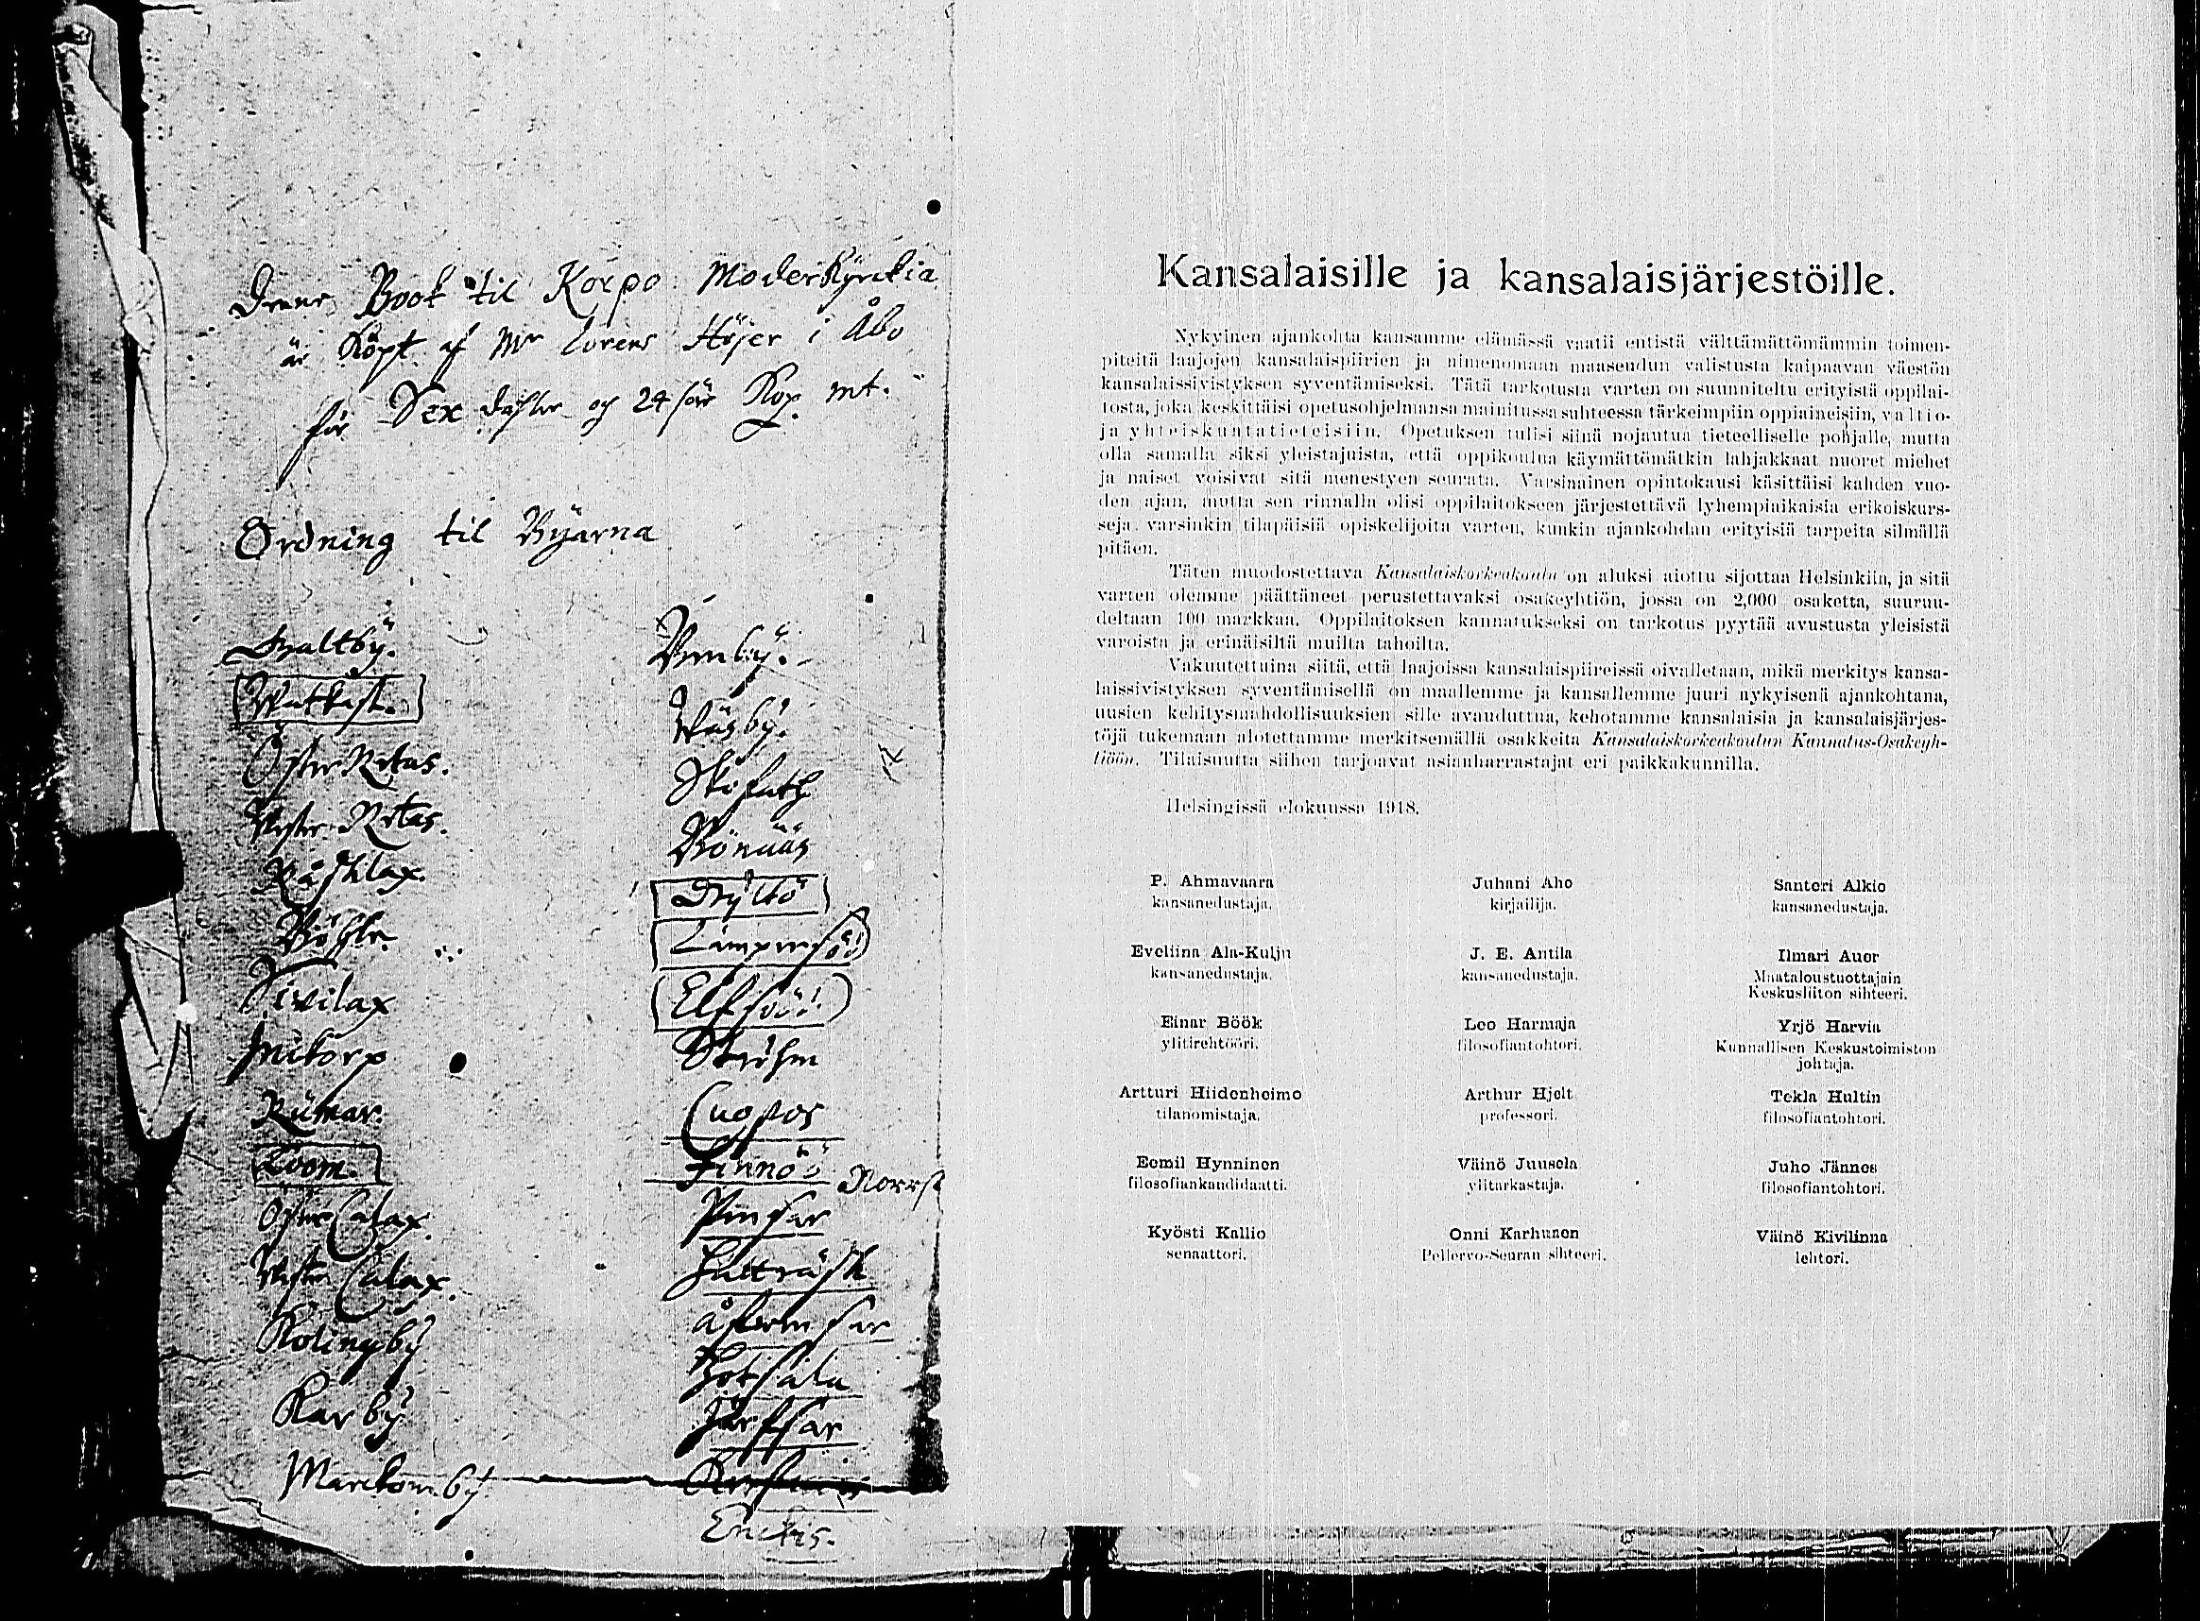 Denne Book til Korpo Moderkyrckia
är Köpt af Mr Lorens Höjer i Åbo
för Sex daler och 24 för Kop. mt.
Ordning til Byarna
Öster Retas.
Vester Retas.
Rumar.
Öster Calax.
Vester Calax.
Kolingby
Karby
Marckomby
Wäsby.
Elfsöö
Ströhm
Finnö Norrsk
Kansalaisille ja kansalaisjärjestöille.
Nykyinen ajankohta kansamme elämässä vaatii entistä välttämättömämmin toimen-
piteitä laajojen kansalaispiirien ja nimenomaan maaseudun valistusta kaipaavan väestön
kansalaissivistyksen syventämiseksi. Tätä tarkotusta varten on suunniteltu erityistä oppilai-
tosta, joka keskittäisi opetusohjelmansa mainitussa suhteessa tärkeimpiin oppiaineisiin, valtio-
ja yhteiskuntatieteisiin. Opetuksen tulisi siinä nojautua tieteelliselle pohjalle, mutta
olla samalla siksi yleistajuista, että oppikoulua käymättömätkin lahjakkaat nuoret miehet
ja naiset voisivat sitä menestyen seurata. Varsinainen opintokausi käsittäisi kahden vuo-
den ajan, mutta sen rinnalla olisi oppilaitokseen järjestettävä lyhempiaikaisia erikoiskurs-
seja varsinkin tilapäisiä opiskelijoita varten, kunkin ajankohdan erityisiä tarpeita silmällä
pitäen.
Täten muodostettava Kansalaiskorkeakoulu on aluksi aiottu sijottaa Helsinkiin, ja sitä
varten olemme päättäneet perustettavaksi osakeyhtiön, jossa on 2,000 osaketta, suuruu-
deltaan 100 markkaa. Oppilaitoksen kannatukseksi on tarkotus pyytää avustusta yleisistä
varoista ja erinäisiltä muilta tahoilta.
Vakuutettuina siitä, että laajoissa kansalaispiireissä oivalletaan, mikä merkitys kansa-
laissivistyksen syventämisellä on maallemme ja kansallemme juuri nykyisenä ajankohtana,
uusien kehitysmahdollisuuksien sille avauduttua, kehotamme kansalaisia ja kansalaisjärjes-
töjä tukemaan alotettamme merkitsemällä osakkeita Kansalaiskorkeakoulun Kannatus-Osakeyh-
tiöön. Tilaisuutta siihen tarjoavat asianharrastajat eri paikkakunnilla.
Helsingissä elokuussa 1918.
P. Ahmavaara Juhani Aho Santeri Alkio
kansanedustaja. kirjailija. kansanedustaja.
Eveliina Ala-Kulju J. E. Antila Ilmari Auer
kansanedustaja. kansanedustaja. Maataloustuottajain
Keskusliiton sihteeri.
Einar Böök Leo Harmaja Yrjö Harvia
ylitirehtööri. filosofiantohtori. Kunnallisen Keskustoimiston
johtaja.
Artturi Hiidenheimo Arthur Hjelt Tekla Hultin
tilanomistaja. professori. filosofiantohtori.
Eemil Hynninen Väinö Juusela Juho Jännes
filosofiankandidaatti. ylitarkastaja. filosofiantohtori.
Kyösti Kallio Onni Karhunen Väinö Kivilinna
senaattori. Pellervo-Seuran sihteeri. lehtori.